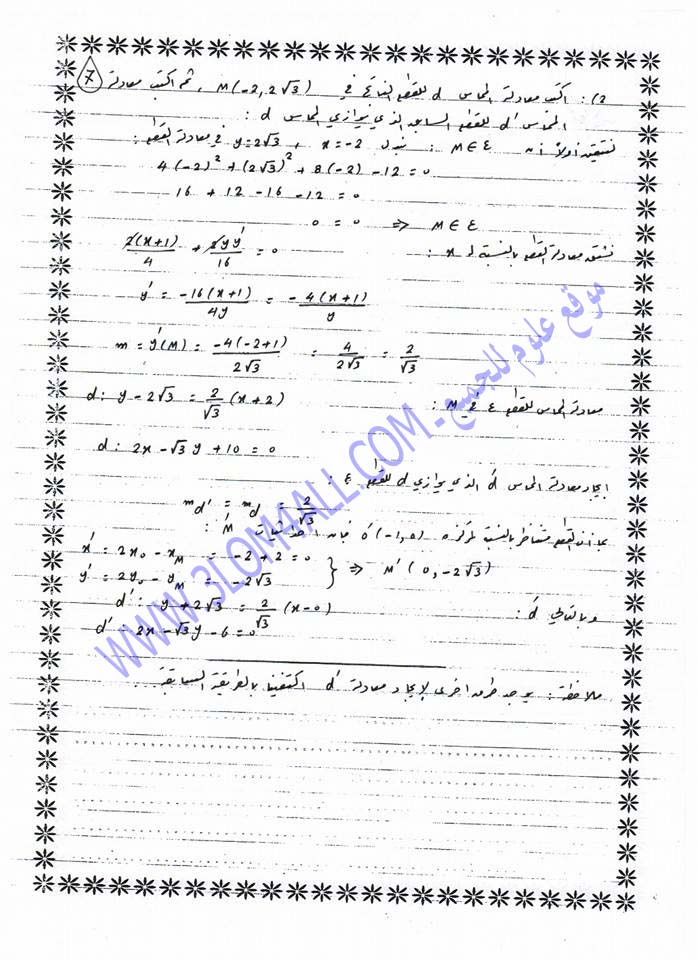 7
2): اكتب معادلة المماس d للقطع الناتج في M(-2, 2√3) ، ثم اكتب معادلة
المماس d' للقطع السابق الذي يوازي المماس d :
نتحقق أولاً أن M ∈ ε : نبدل x = -2 , y = 2√3 في معادلة القطع :
4(-2)² + (2√3)² + 8(-2) - 12 = 0
16 + 12 - 16 - 12 = 0
0 = 0 ⇒ M ∈ ε
نشتق معادلة القطع بالنسبة لـ x :
2(x+1)/4 + 2yy'/16 = 0
y' = -16(x+1)/4y = -4(x+1)/y
m = y'(M) = -4(-2+1)/2√3 = 4/2√3 = 2/√3
معادلة المماس للقطع ε في M :
d: y - 2√3 = 2/√3 (x+2)
d: 2x - √3 y + 10 = 0
ايجاد معادلة المماس d' الذي يوازي d للقطع ε :
m_d' = m_d = 2/√3
بما أن القطع متناظر بالنسبة لمركزه O'(-1, 0) فإن احداثيات M' :
x' = 2x₀ - x_M = -2 + 2 = 0
y' = 2y₀ - y_M = -2√3
} ⇒ M'(0, -2√3)
وبالتالي d' :
d': y + 2√3 = 2/√3 (x-0)
d': 2x - √3 y - 6 = 0
ملاحظة : يوجد طرق اخرى لإيجاد معادلة d' اكتفينا بالطريقة السابقة
WWW.3LOM4ALL.COM - موقع علوم للجميع